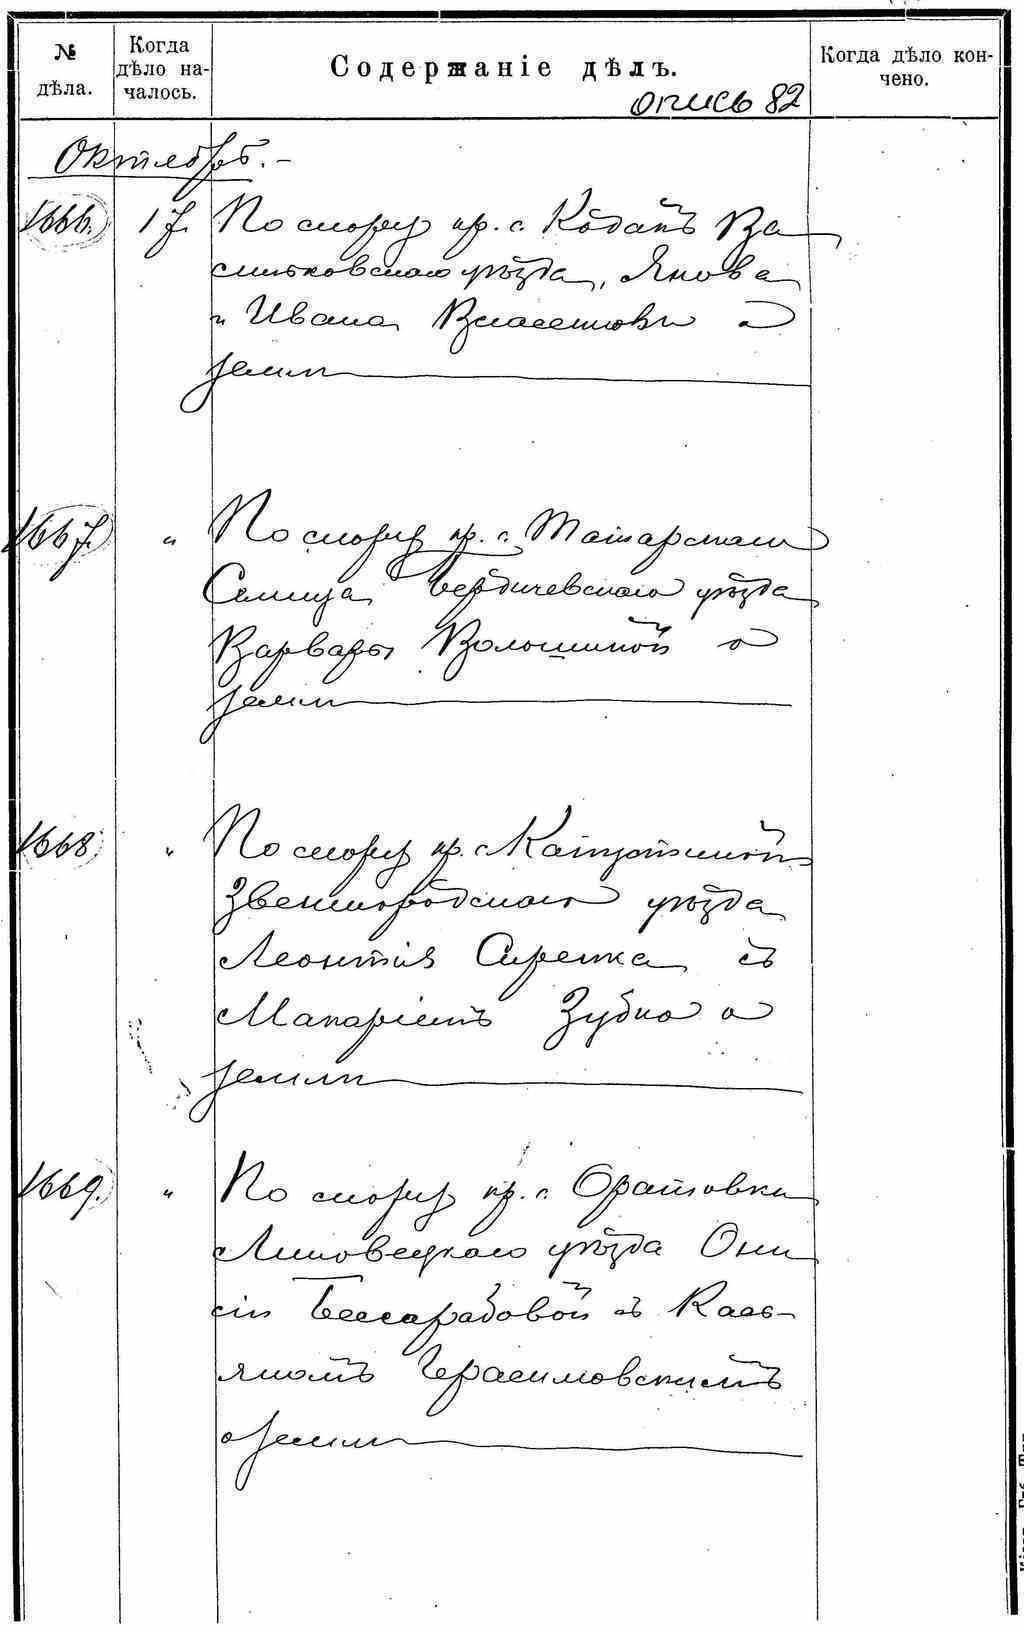 №
дѣла.
Когда
дѣло на-
чалось.
Содержаніе дѣлъ.
Когда дѣло кон-
чено.
опись 82
Октябрь.
1666. 17. По спору кр. с. Кодакъ Ва
сильковскаго уѣзда, Якова
и Ивана о
земли
1667. " По спору кр. с. Татарская
Селища Бердичевскаго уѣзда
Варвары Волошиной о
земли
1668 " По спору кр. с.
Звенигородскаго уѣзда
Леонтія Сиренка съ
Макаріемъ Зубко о
земли
1669. " По спору кр. с. Оратовки
Липовецкаго уѣзда Они
сіи Бессарабовой съ Кась-
яномъ Герасимовскимъ
о земли